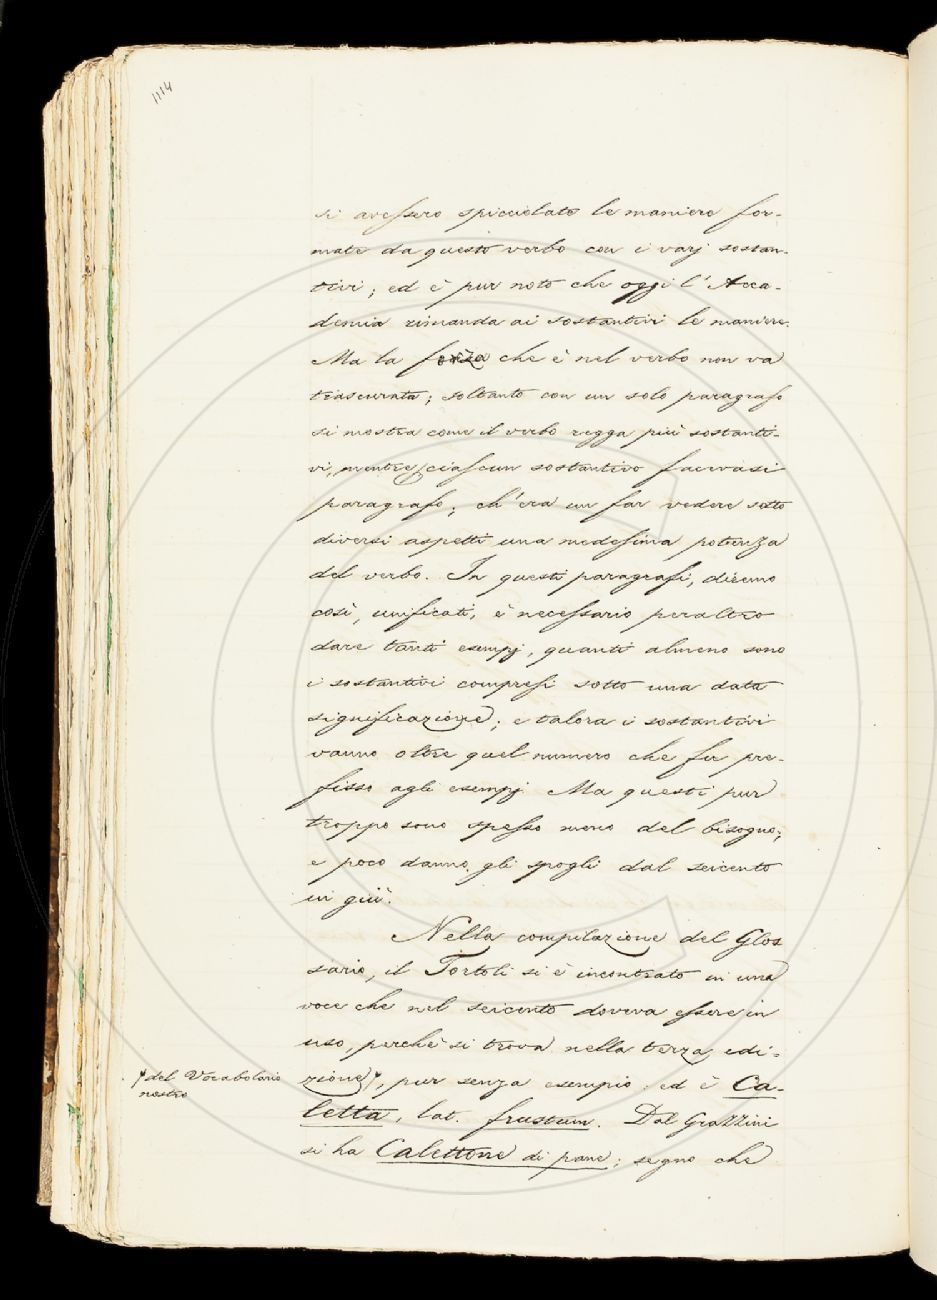 1114
si avessero spicciolato le maniere for-
mate da questo verbo con i varj sostan-
tivi; ed è pur noto che oggi l'Acca-
demia rimanda ai sostantivi le maniere.
Ma la forza che è nel verbo non va
trascurata; soltanto con un solo paragrafo
si mostra come il verbo regga più sostanti-
vi, mentre ciascun sostantivo facevasi
paragrafo; ch'era un far vedere sotto
diversi aspetti una medesima potenza
del verbo. In questi paragrafi, diremo
così, unificati, è necessario peraltro
dare tanti esempj, quanti almeno sono
i sostantivi compresi sotto una data
significazione; e talora i sostantivi
vanno oltre quel numero che fu pre-
fisso agli esempj. Ma questi pur
troppo sono spesso meno del bisogno;
e poco danno gli spogli dal seicento
in giù.
Nella compilazione del Glos
sario, il Tortoli si è incontrato in una
voce che nel seicento doveva essere in
uso, perchè si trova nella terza edi-
zione, pur senza esempio: ed è Ca-
del Vocabolario
nostro
letta, lat. frustum. Dal Grazzini
si ha Calettone di pane; segno che